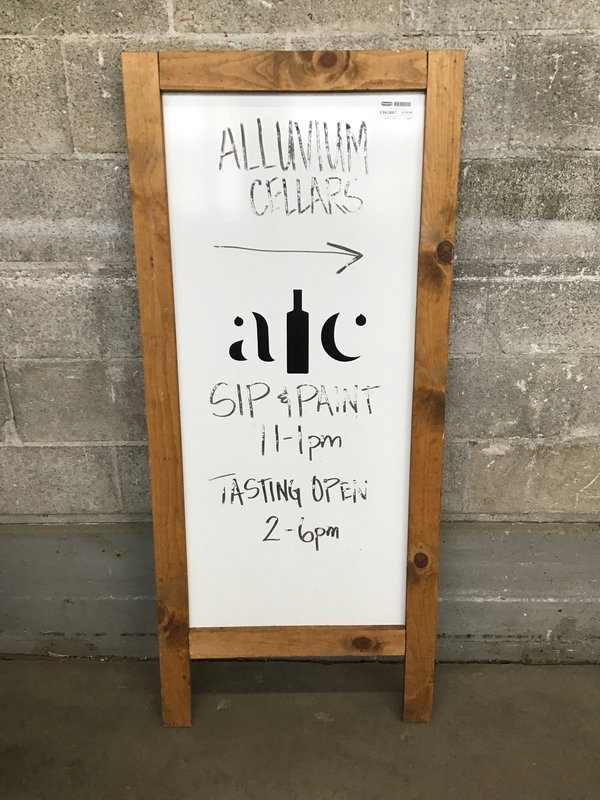 ALLUVIUM
CELLARS
a c
SIP & PAINT
11-1pm
TASTING OPEN
2-6pm